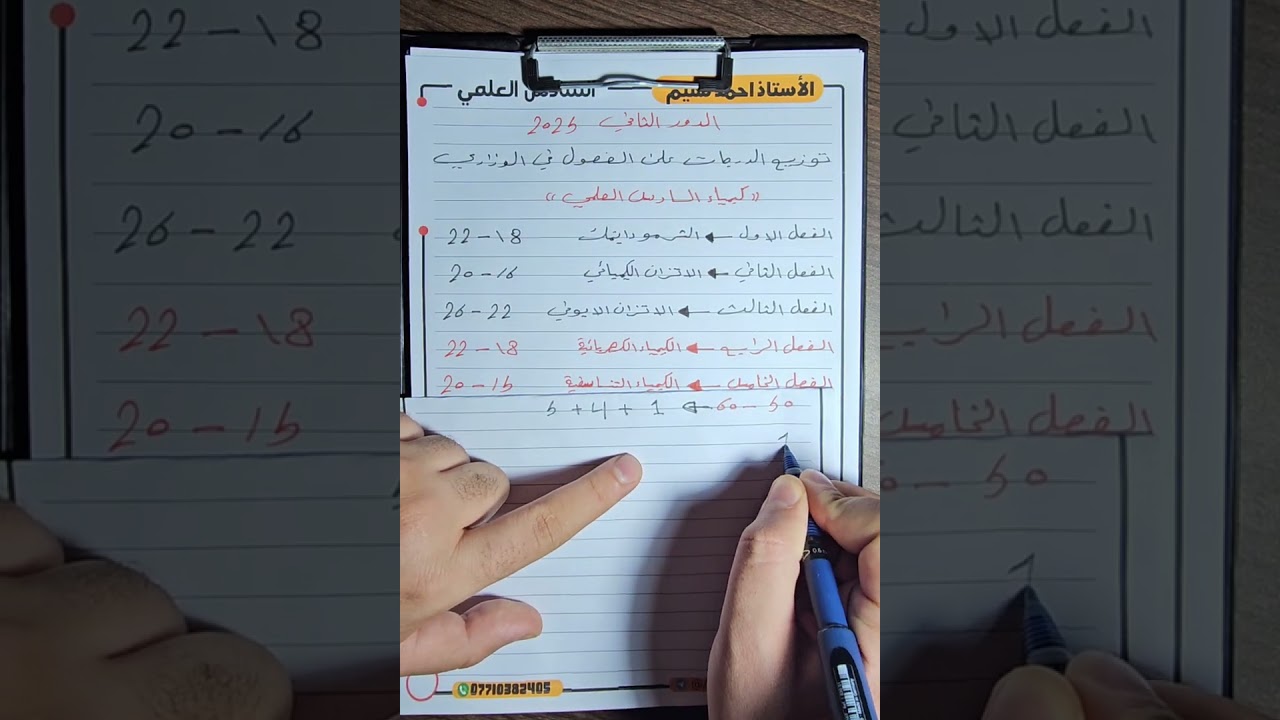 الأستاذ احمد نسيم السادس العلمي
الدور الثاني 2025
توزيع الدرجات على الفصول في الوزاري
«كيمياء السادس العلمي»
الفصل الاول ← الثرموداينمك 18 – 22
الفصل الثاني ← الاتزان الكيميائي 16 – 20
الفصل الثالث ← الاتزان الايوني 22 – 26
الفصل الرابع ← الكيمياء الكهربائية 18 – 22
الفصل الخامس ← الكيمياء التناسقية 15 – 20
5 + 4 + 1 ← 60 – 50
1
07710382405